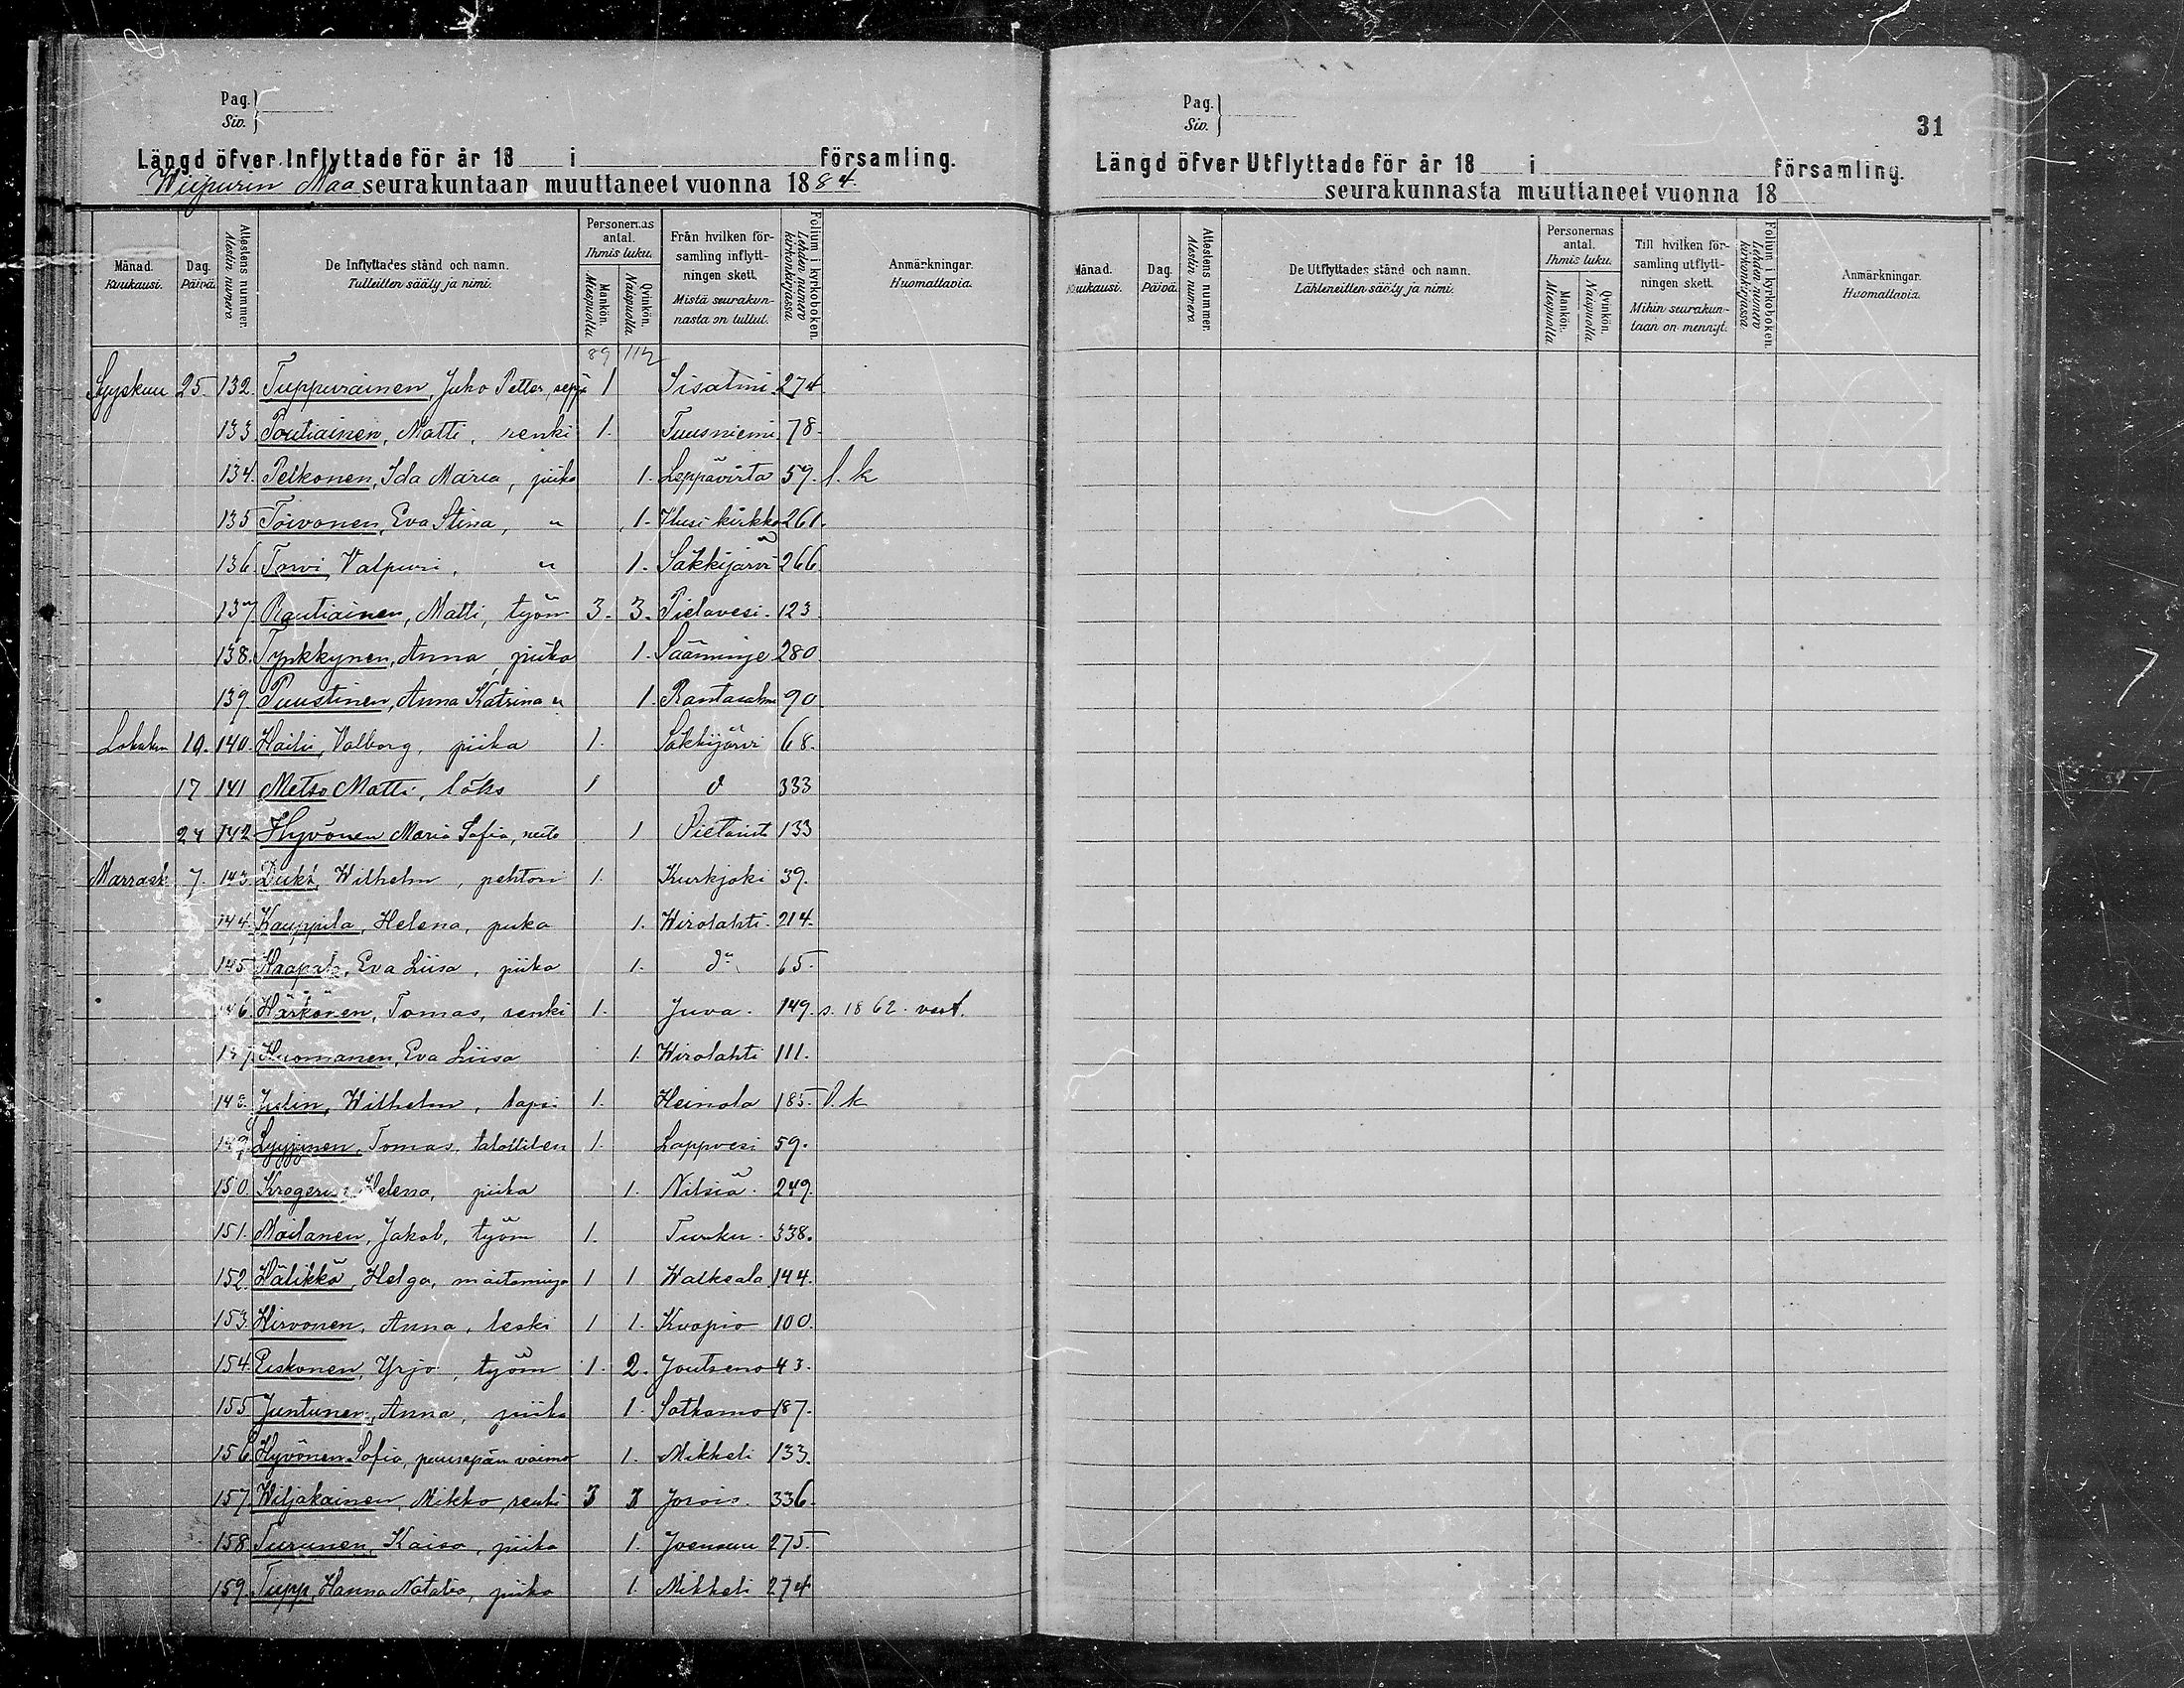 Pag.
Siv.
Längd öfver Inflyttade för år 18 i församling.
Wiipurin Maa seurakuntaan muuttaneet vuonna 1884.
Månad. Kuukausi.
Dag. Päivä.
Attestens nummer. Alestin numero.
De Inflyttades stånd och namn. Tulleitten sääty ja nimi.
Personernas antal. Ihmis luku.
Mankön. Miespuolta.
Qvinkön. Naispuolta.
Från hvilken församling inflyttningen skett. Mistä seurakunnasta on tullut.
Folium i kyrkoboken. Lehden numero kirkonkirjassa.
Anmärkningar. Huomattavia.
89 112
Syyskuu 25 132. Tuppurainen, Juho Petter, seppä 1 Iisalmi 274
133 Poutiainen, Matti, renki 1. Tuusniemi 78.
134. Pelkonen, Ida Maria, piika 1. Leppävirta 59. l. k
135 Toivonen, Eva Stina, " 1. Uusi kirkko 261.
136. Torvi, Valpuri, " 1. Säkkijärvi 266.
137 Rautiainen, Matti, työm 3. 3. Pielavesi. 123
138. Tynkkynen, Anna, piika 1. Sääminge 280
139 Puustinen, Anna Katrina " 1. Rantasalmi 90
Lokakuu 10. 140. Haili, Valborg, piika 1. Säkkijärvi 68.
17 141 Metso Matti, löks 1 d 333
24 142 Hyvönen Maria Sofia, neito 1 Pietarist 133
Marrask 7. 143. Wilhelm, pehtori 1. Kurkjoki 39.
144. Kauppila, Helena, piika 1. Wirolahti. 214.
145 Haapala, Eva Liisa, piika 1. do 65.
146. Härkönen, Tomas, renki 1. Juva. 149. s. 1862. vast.
147 Huomanen, Eva Liisa 1. Wirolahti 111.
148. Juslin, Wilhelm, lapsi 1. Heinola 185. l. k
149 Lyijynen, Tomas, talollisen 1. Lappvesi 59.
150. Helena, piika 1. Nilsiä. 249.
151. Moilanen, Jakob, työm 1. Turku. 338.
152. Hälikkä, Helga, 1 1 Walkeala 144.
153. Hirvonen, Anna, leski 1 1. Kuopio 100.
154. Eiskonen, Yrjö, työm 1. 2. Joutseno 43.
155 Juntunen, Anna, piika 1. Sotkamo 187.
156 Hyvönen Sofia, puusepän vaimo 1. Mikkeli 133.
157. Wiljakainen, Mikko, renki 3 3 Jorois. 336.
158. Turunen, Kaisa, piika 1. Joensuu 275.
159. Tupp, Hanna Natalia, piika 1. Mikkeli 274
Pag.
Siv.
31
Längd öfver Utflyttade för år 18 i församling.
seurakunnasta muuttaneet vuonna 18
Månad. Kuukausi.
Dag. Päivä.
Attestens nummer. Alestin numero.
De Utflyttades stånd och namn. Lähteneitten sääty ja nimi.
Personernas antal. Ihmis luku.
Mankön. Miespuolta
Qvinkön. Naispuolta.
Till hvilken församling utflyttningen skett. Mihin seurakuntaan on mennyt.
Folium i kyrkoboken. Lehden numero kirkonkirjassa.
Anmärkningar. Huomattavia.